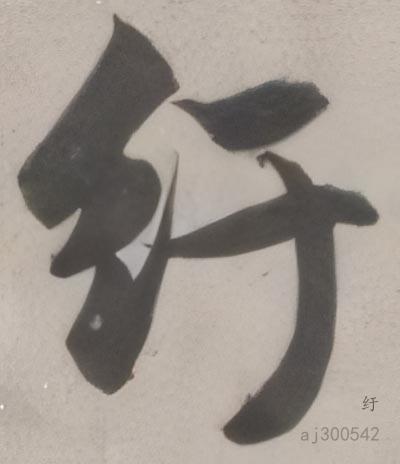 纡
纡
aj300542